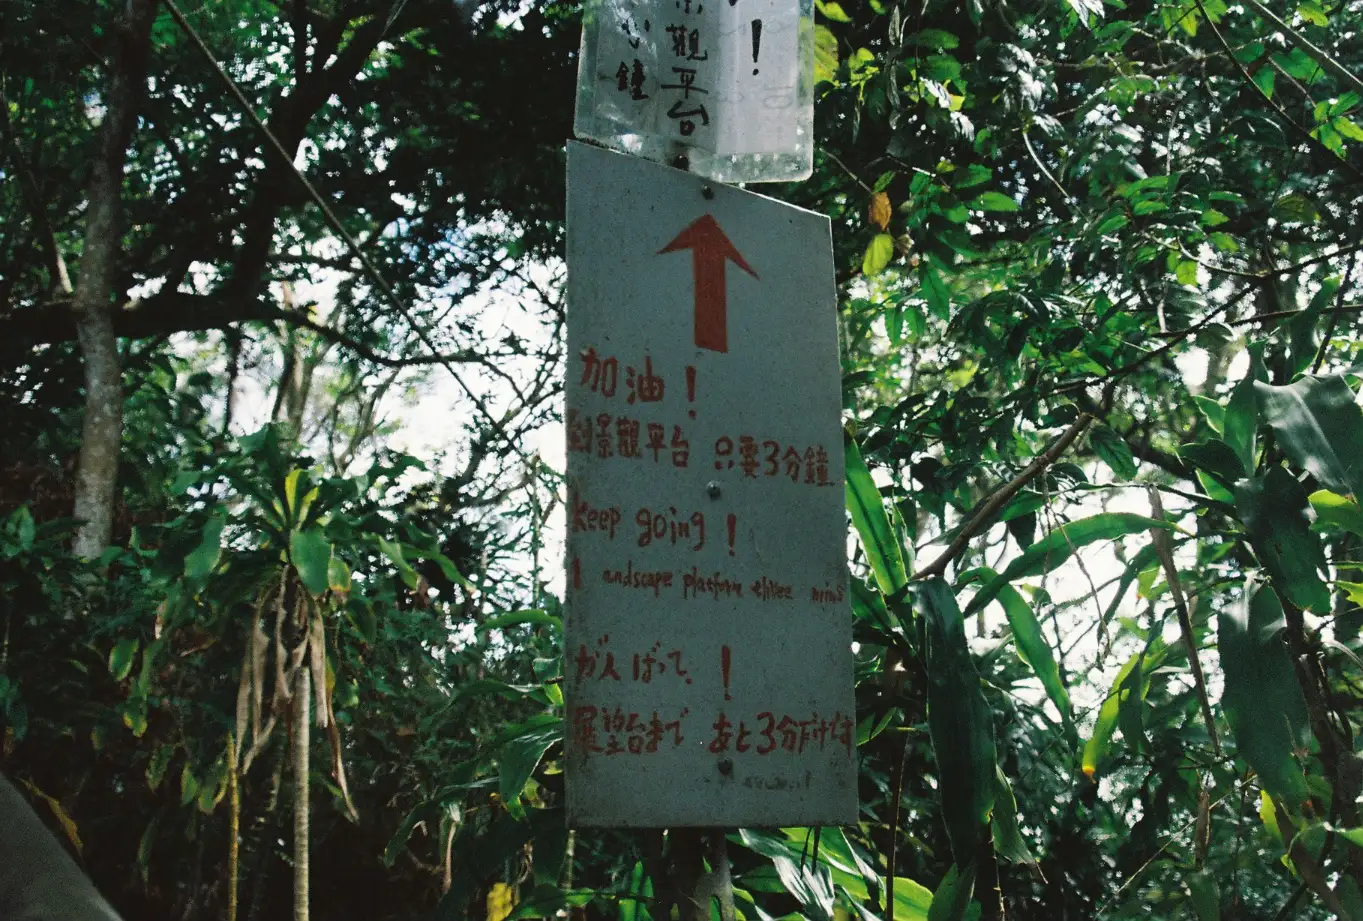 觀平台
鐘
!
加油!
到景觀平台 只要3分鐘
keep going!
landscape platform three mins
がんばって!
展望台まで あと3分だけ